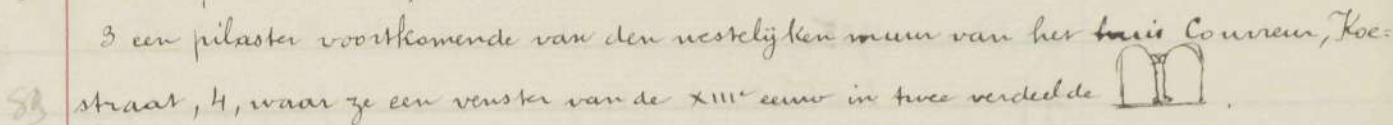 3 een pilaster voortkomende van den westelijken muur van het huis Couvreur, Koe=
83 straat, 4, waar ze een venster van de XIIIe eeuw in twee verdeelde .